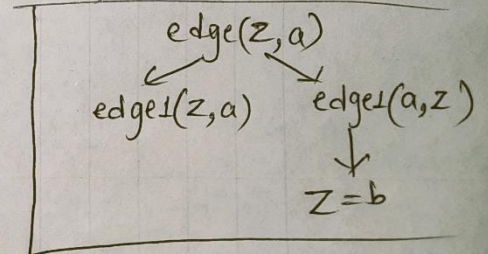 edge(Z,a)
edge1(Z,a) edge1(a,Z)
Z=b